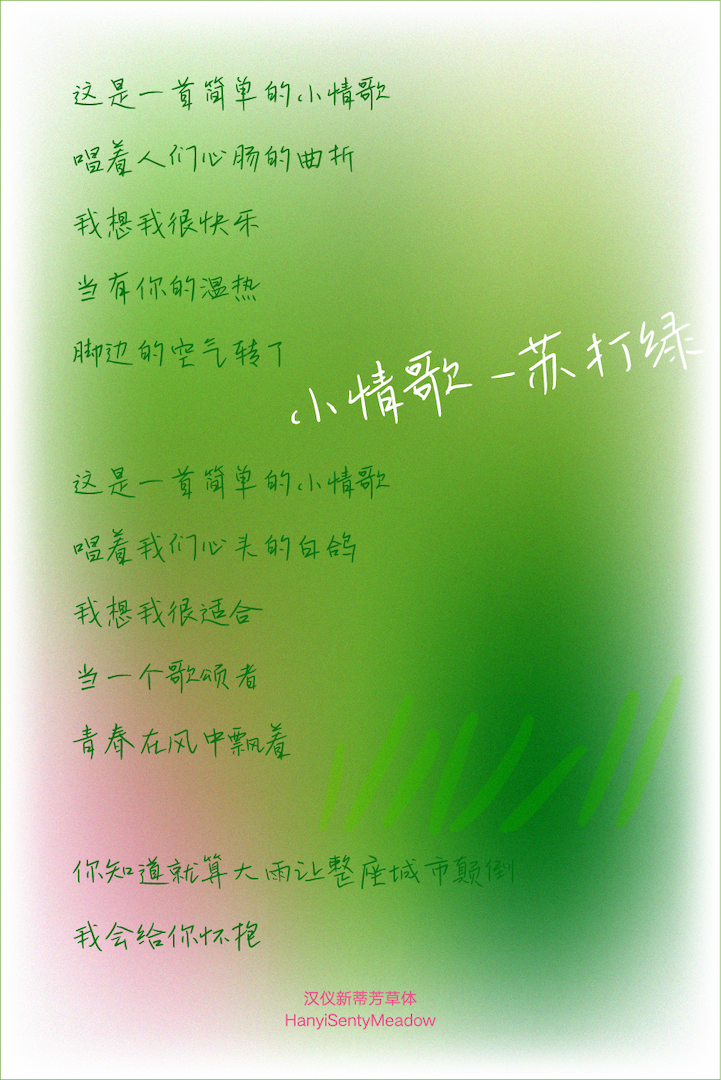 这是一首简单的小情歌
唱着人们心肠的曲折
我想我很快乐
当有你的温热
脚边的空气转了
小情歌-苏打绿
这是一首简单的小情歌
唱着我们心头的白鸽
我想我很适合
当一个歌颂者
青春在风中飘着
你知道就算大雨让整座城市颠倒
我会给你怀抱
汉仪新蒂芳草体
HanyiSentyMeadow